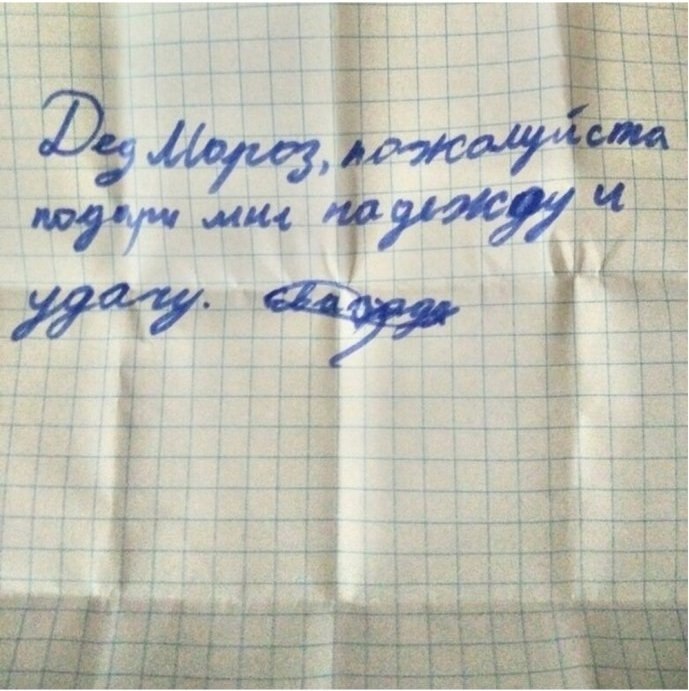 Дед Мороз, пожалуйста
подари мне надежду и
удачу.